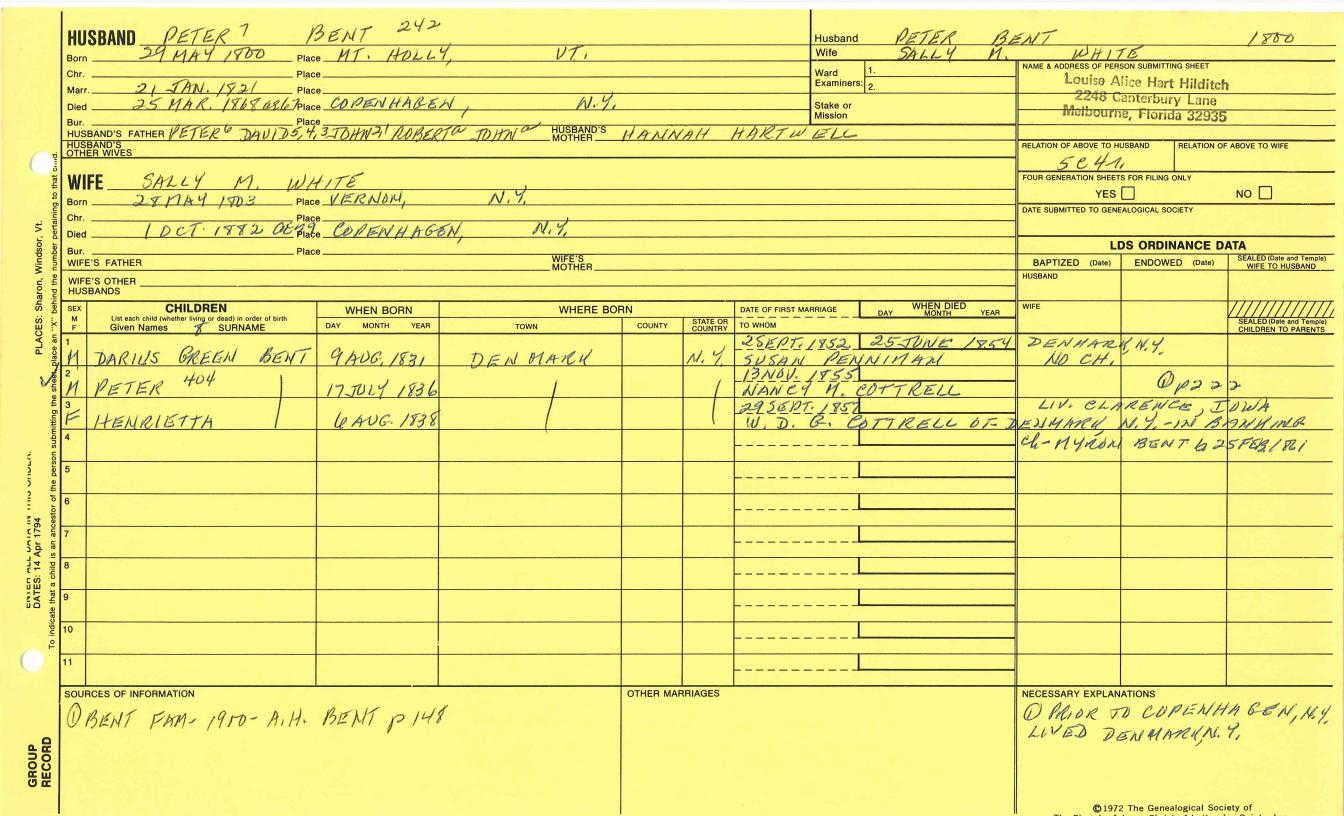 HUSBAND PETER 7 BENT 242
Born 29 MAY 1800 Place MT. HOLLY, VT.
Chr. Place
Marr. 21 JAN. 1821 Place
Died 25 MAR. 1868 Place COPENHAGEN, N.Y.
Bur. Place
HUSBAND'S FATHER PETER 6 DAVID 5, 4, 3 JOHN 2, 1 ROBERT a JOHN a HUSBAND'S MOTHER HANNAH HARTWELL
HUSBAND'S OTHER WIVES
Husband PETER BENT 1800
Wife SALLY M. WHITE
Ward Examiners: 1.
2.
Stake or Mission
NAME & ADDRESS OF PERSON SUBMITTING SHEET
Louise Alice Hart Hilditch
2248 Canterbury Lane
Melbourne, Florida 32935
RELATION OF ABOVE TO HUSBAND RELATION OF ABOVE TO WIFE
5C4r.
FOUR GENERATION SHEETS FOR FILING ONLY
YES NO
DATE SUBMITTED TO GENEALOGICAL SOCIETY
WIFE SALLY M. WHITE
Born 28 MAY 1803 Place VERNON, N.Y.
Chr. Place
Died 1 OCT. 1882 Place COPENHAGEN, N.Y.
Bur. Place
WIFE'S FATHER WIFE'S MOTHER
WIFE'S OTHER HUSBANDS
LDS ORDINANCE DATA
BAPTIZED (Date) ENDOWED (Date) SEALED (Date and Temple) WIFE TO HUSBAND
HUSBAND
WIFE
SEALED (Date and Temple) CHILDREN TO PARENTS
SEX M F
CHILDREN
List each child (whether living or dead) in order of birth
Given Names SURNAME
WHEN BORN
DAY MONTH YEAR
WHERE BORN
TOWN COUNTY STATE OR COUNTRY
DATE OF FIRST MARRIAGE
TO WHOM
WHEN DIED
DAY MONTH YEAR
1 M DARIUS GREEN BENT 9 AUG. 1831 DENMARK N.Y. 25 SEPT. 1852 25 JUNE 1854 DENMARK, N.Y.
SUSAN PENNIMAN NO CH.
2 M PETER 404 17 JULY 1836 13 NOV. 1855
NANCY M. COTTRELL ① p 222
3 F HENRIETTA 6 AUG. 1838 29 SEPT. LIV. CLARENCE, IOWA
W. D. G. COTTRELL OF DENMARK, N.Y. - IN BANKING
4 ch - MYRON BENT b 25 FEB 1861
5
6
7
8
9
10
11
SOURCES OF INFORMATION
① BENT FAM - 1900 - A.H. BENT p 148
OTHER MARRIAGES
NECESSARY EXPLANATIONS
① PRIOR TO COPENHAGEN, N.Y.
LIVED DENMARK, N.Y.
©1972 The Genealogical Society of
PLACES: Sharon, Windsor, Vt.
DATES: 14 Apr 1794
To indicate that a child is an ancestor of the person submitting the sheet, place an "X" behind the number pertaining to that child.
GROUP RECORD